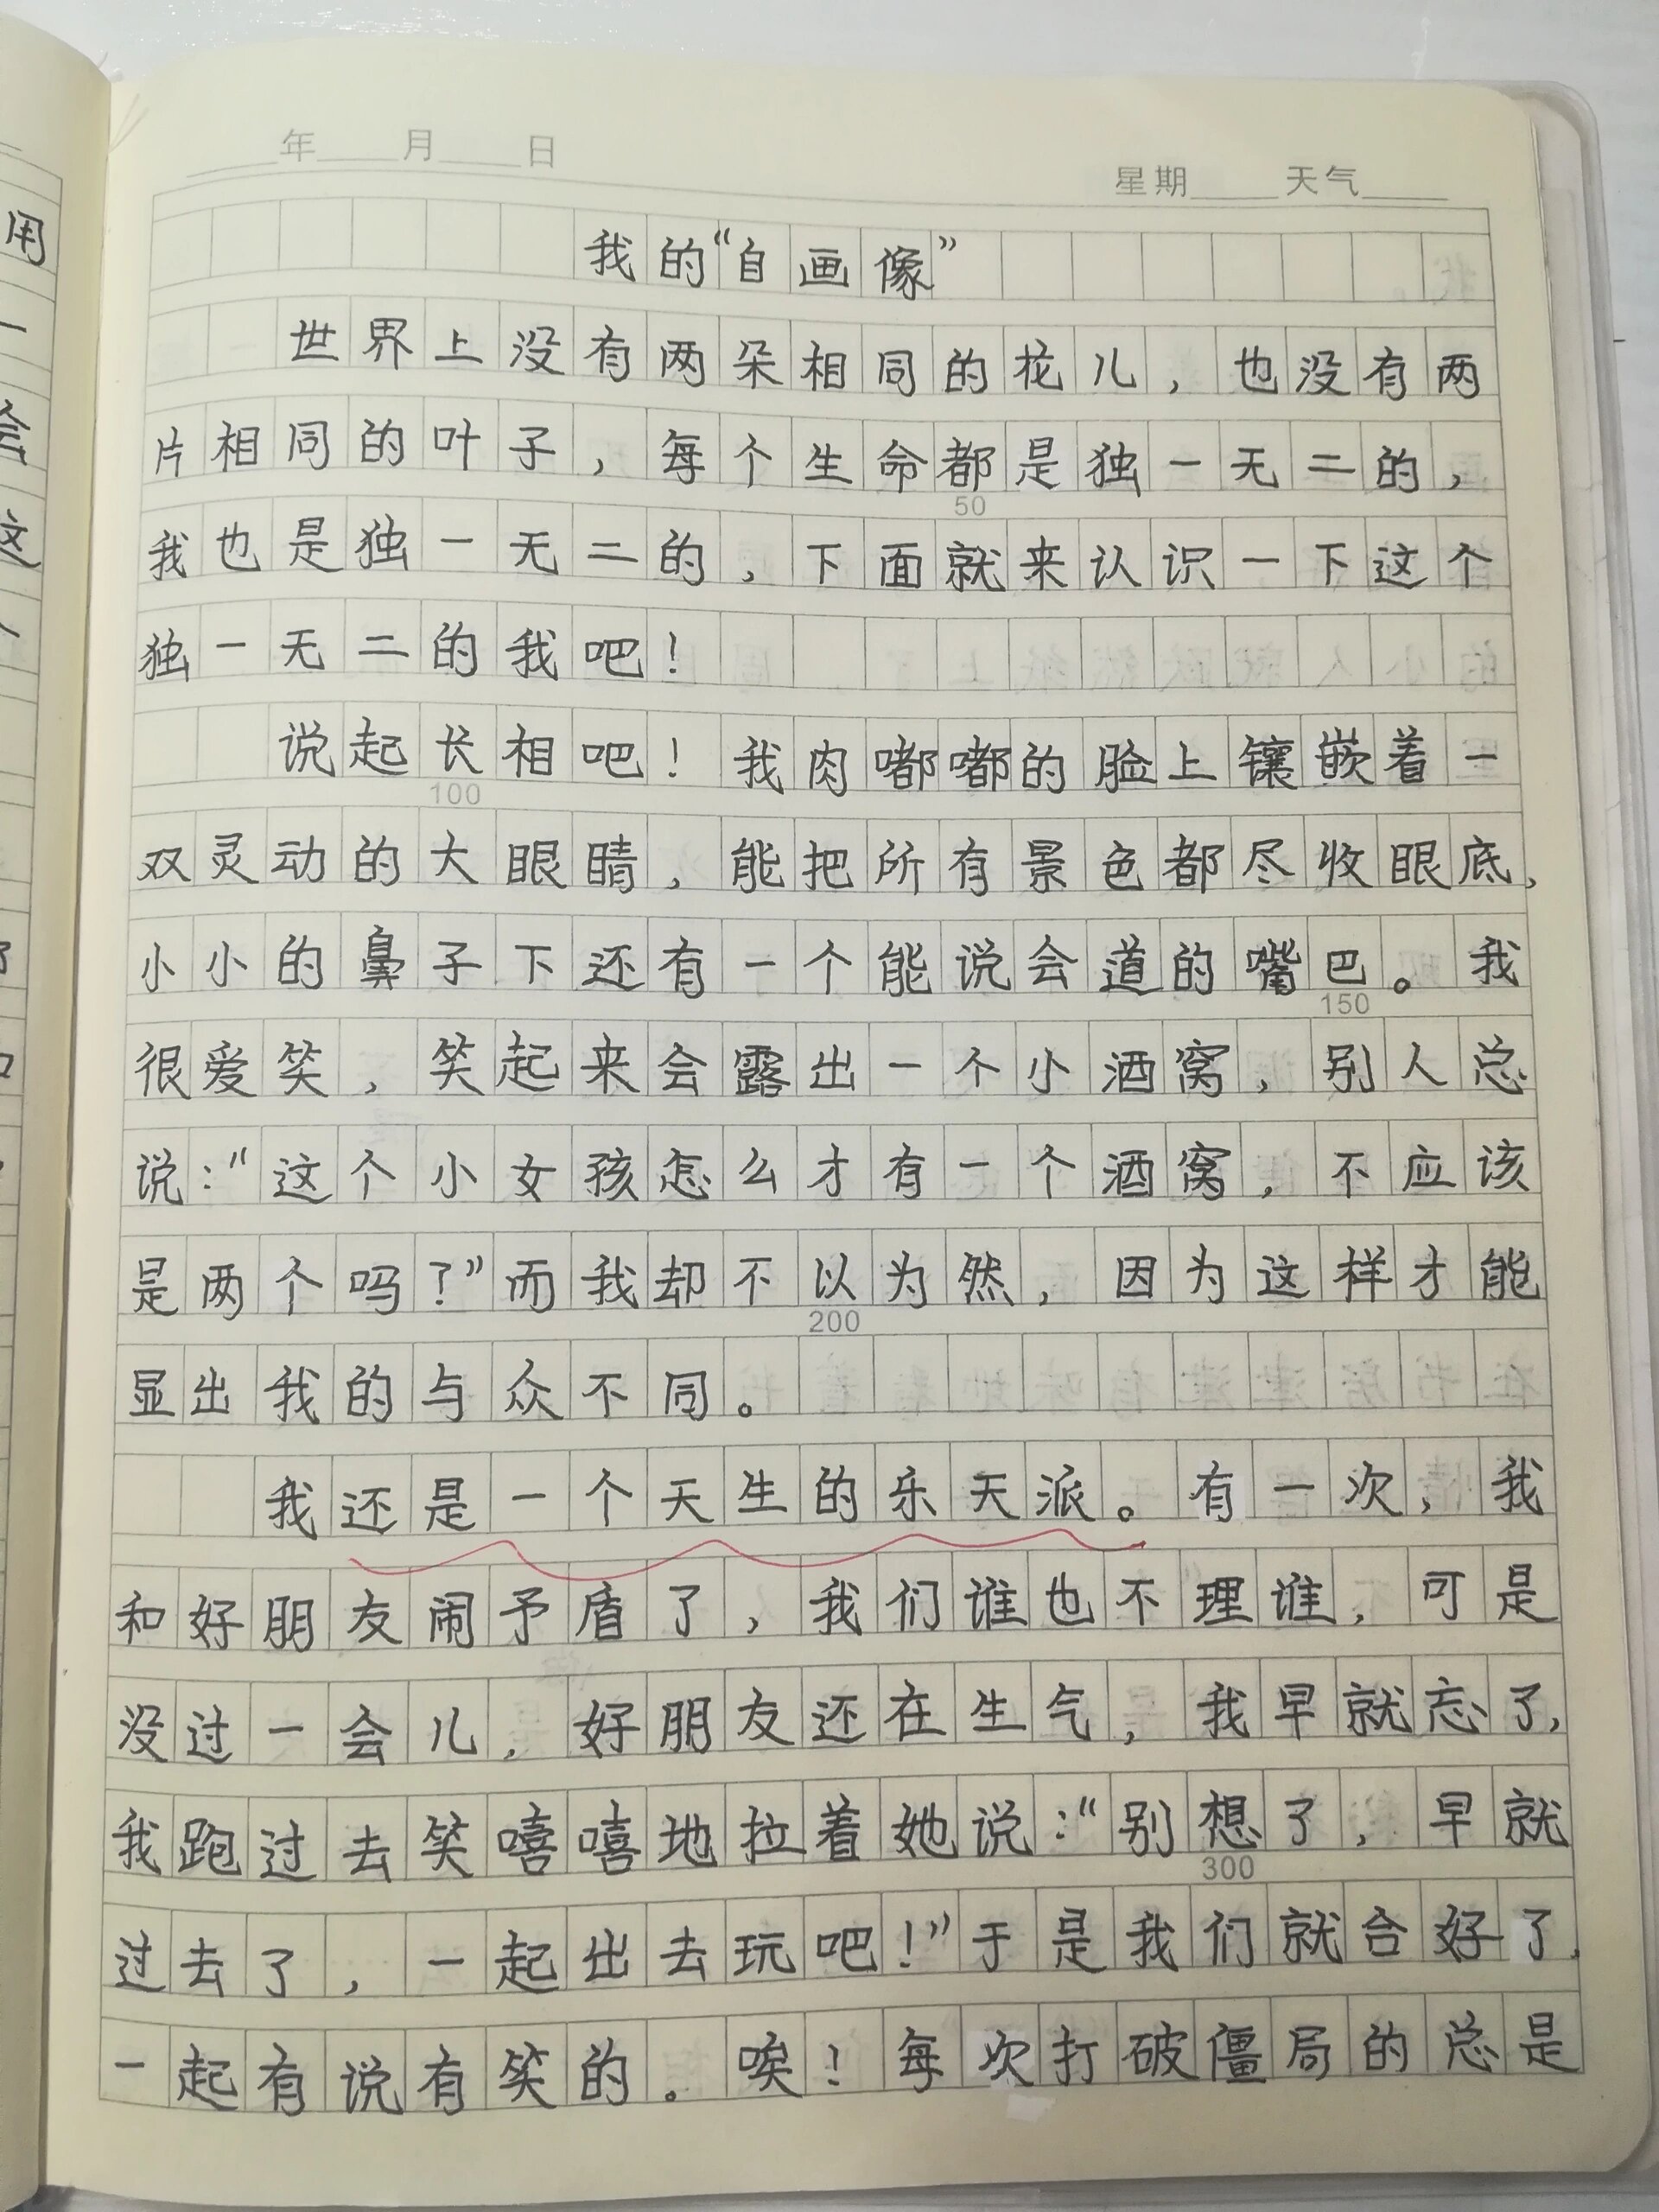 年 月 日
星期 天气
我的“自画像”
世界上没有两朵相同的花儿，也没有两
片相同的叶子，每个生命都是独一无二的，
50
我也是独一无二的，下面就来认识一下这个
独一无二的我吧！
说起长相吧！我肉嘟嘟的脸上镶嵌着一
100
双灵动的大眼睛，能把所有景色都尽收眼底，
小小的鼻子下还有一个能说会道的嘴巴。我
150
很爱笑，笑起来会露出一个小酒窝，别人总
说：“这个小女孩怎么才有一个酒窝，不应该
是两个吗？”而我却不以为然，因为这样才能
200
显出我的与众不同。
我还是一个天生的乐天派。有一次，我
和好朋友闹予盾了，我们谁也不理谁，可是
没过一会儿，好朋友还在生气，我早就忘了，
我跑过去笑嘻嘻地拉着她说：“别想了，早就
300
过去了，一起出去玩吧！”于是我们就合好了，
一起有说有笑的。唉！每次打破僵局的总是